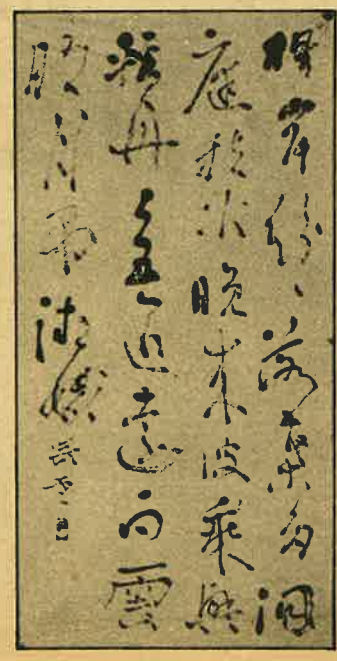 楓岸紛々落葉多洞
庭秋水晚來波乘興
輕舟無近遠白雲
明月弔湘娥